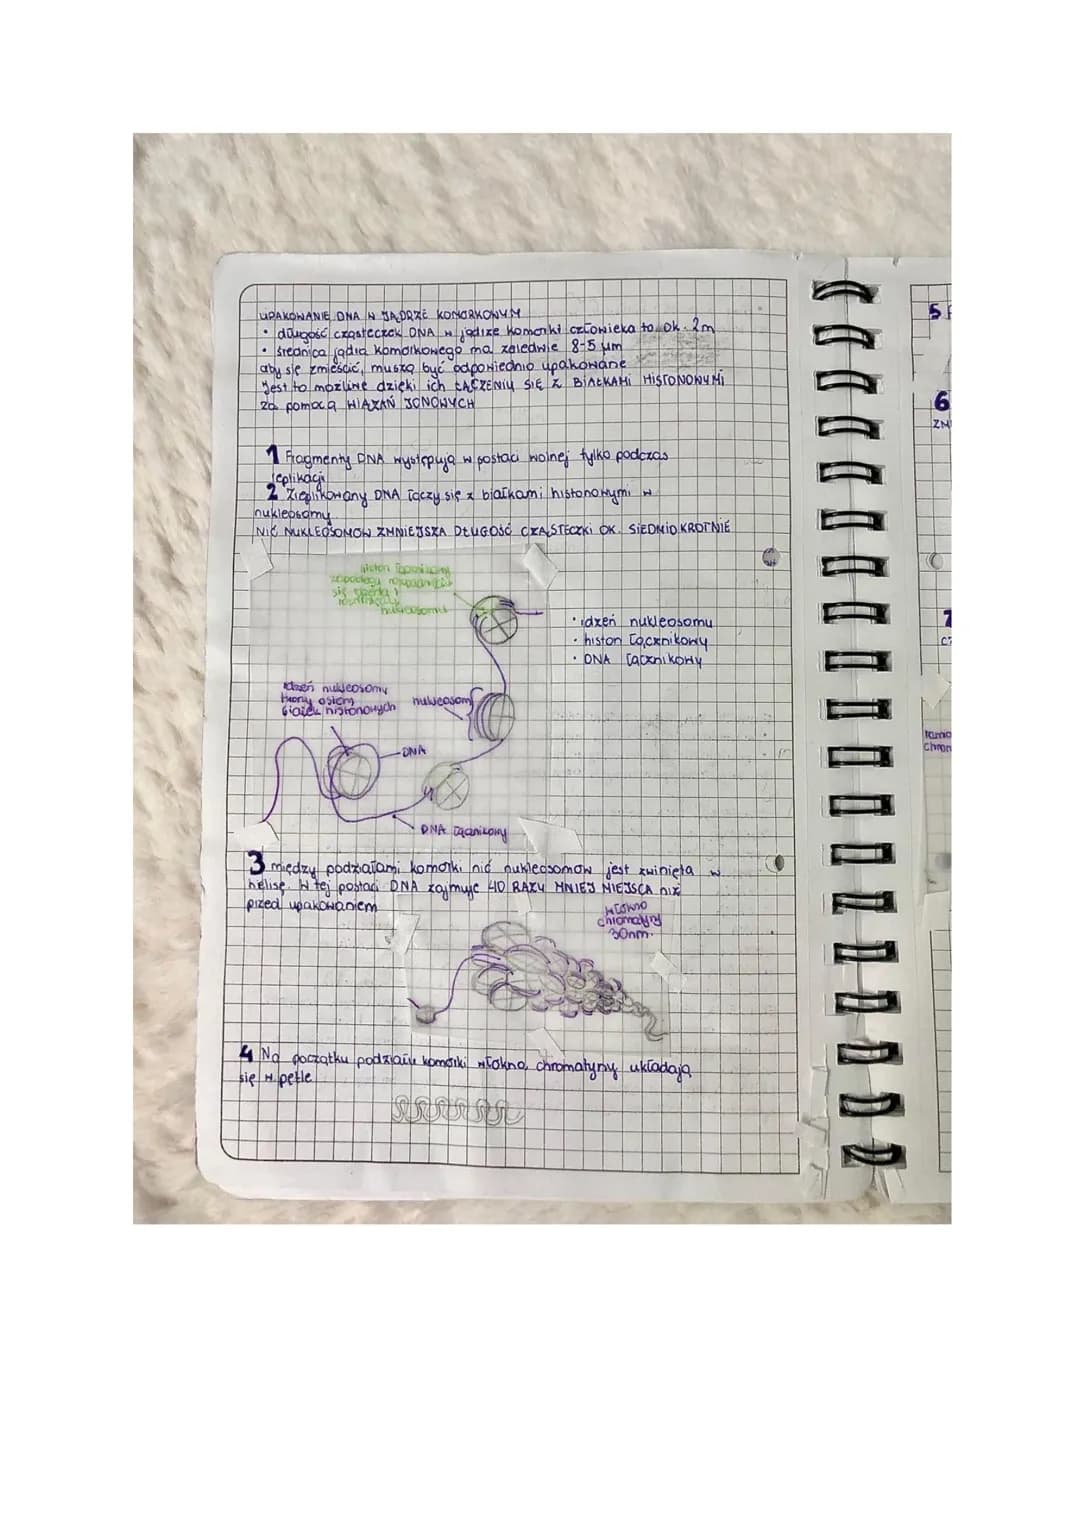 UPAKOWANIE DNA W JĄDRZE KOMÓRKOWYM
• długość cząsteczek DNA w jądrze komórki człowieka to ok. 2m
• średnica jądra komórkowego ma zaledwie 8-5 µm
aby się zmieścić, muszą być odpowiednio upakowane
Jest to możliwe dzięki ich ŁĄCZENIU SIĘ Z BIAŁKAMI HISTONOWYMI
za pomocą WIĄZAŃ JONOWYCH
1 Fragmenty DNA występują w postaci wolnej tylko podczas
replikacji
2 Zreplikowany DNA łączy się z białkami histonowymi w
nukleosomy
NIĆ NUKLEOSOMÓW ZMNIEJSZA DŁUGOŚĆ CZĄSTECZKI OK. SIEDMIOKROTNIE
histon łącznikowy
• rdzeń nukleosomu
• histon łącznikowy
• DNA łącznikowy
rdzeń nukleosomu
tworzy osiem
białek histonowych
nukleosom
DNA
DNA łącznikowy
3 między podziałami komórki nić nukleosomów jest zwinięta w
helisę. W tej postaci DNA zajmuje 40 RAZY MNIEJ MIEJSCA niż
przed upakowaniem
włókno
chromatyny
30nm.
4 Na początku podziału komórki włókna chromatyny układają
się w pętle
5
6
ZM
7
cz
ramio
chrom